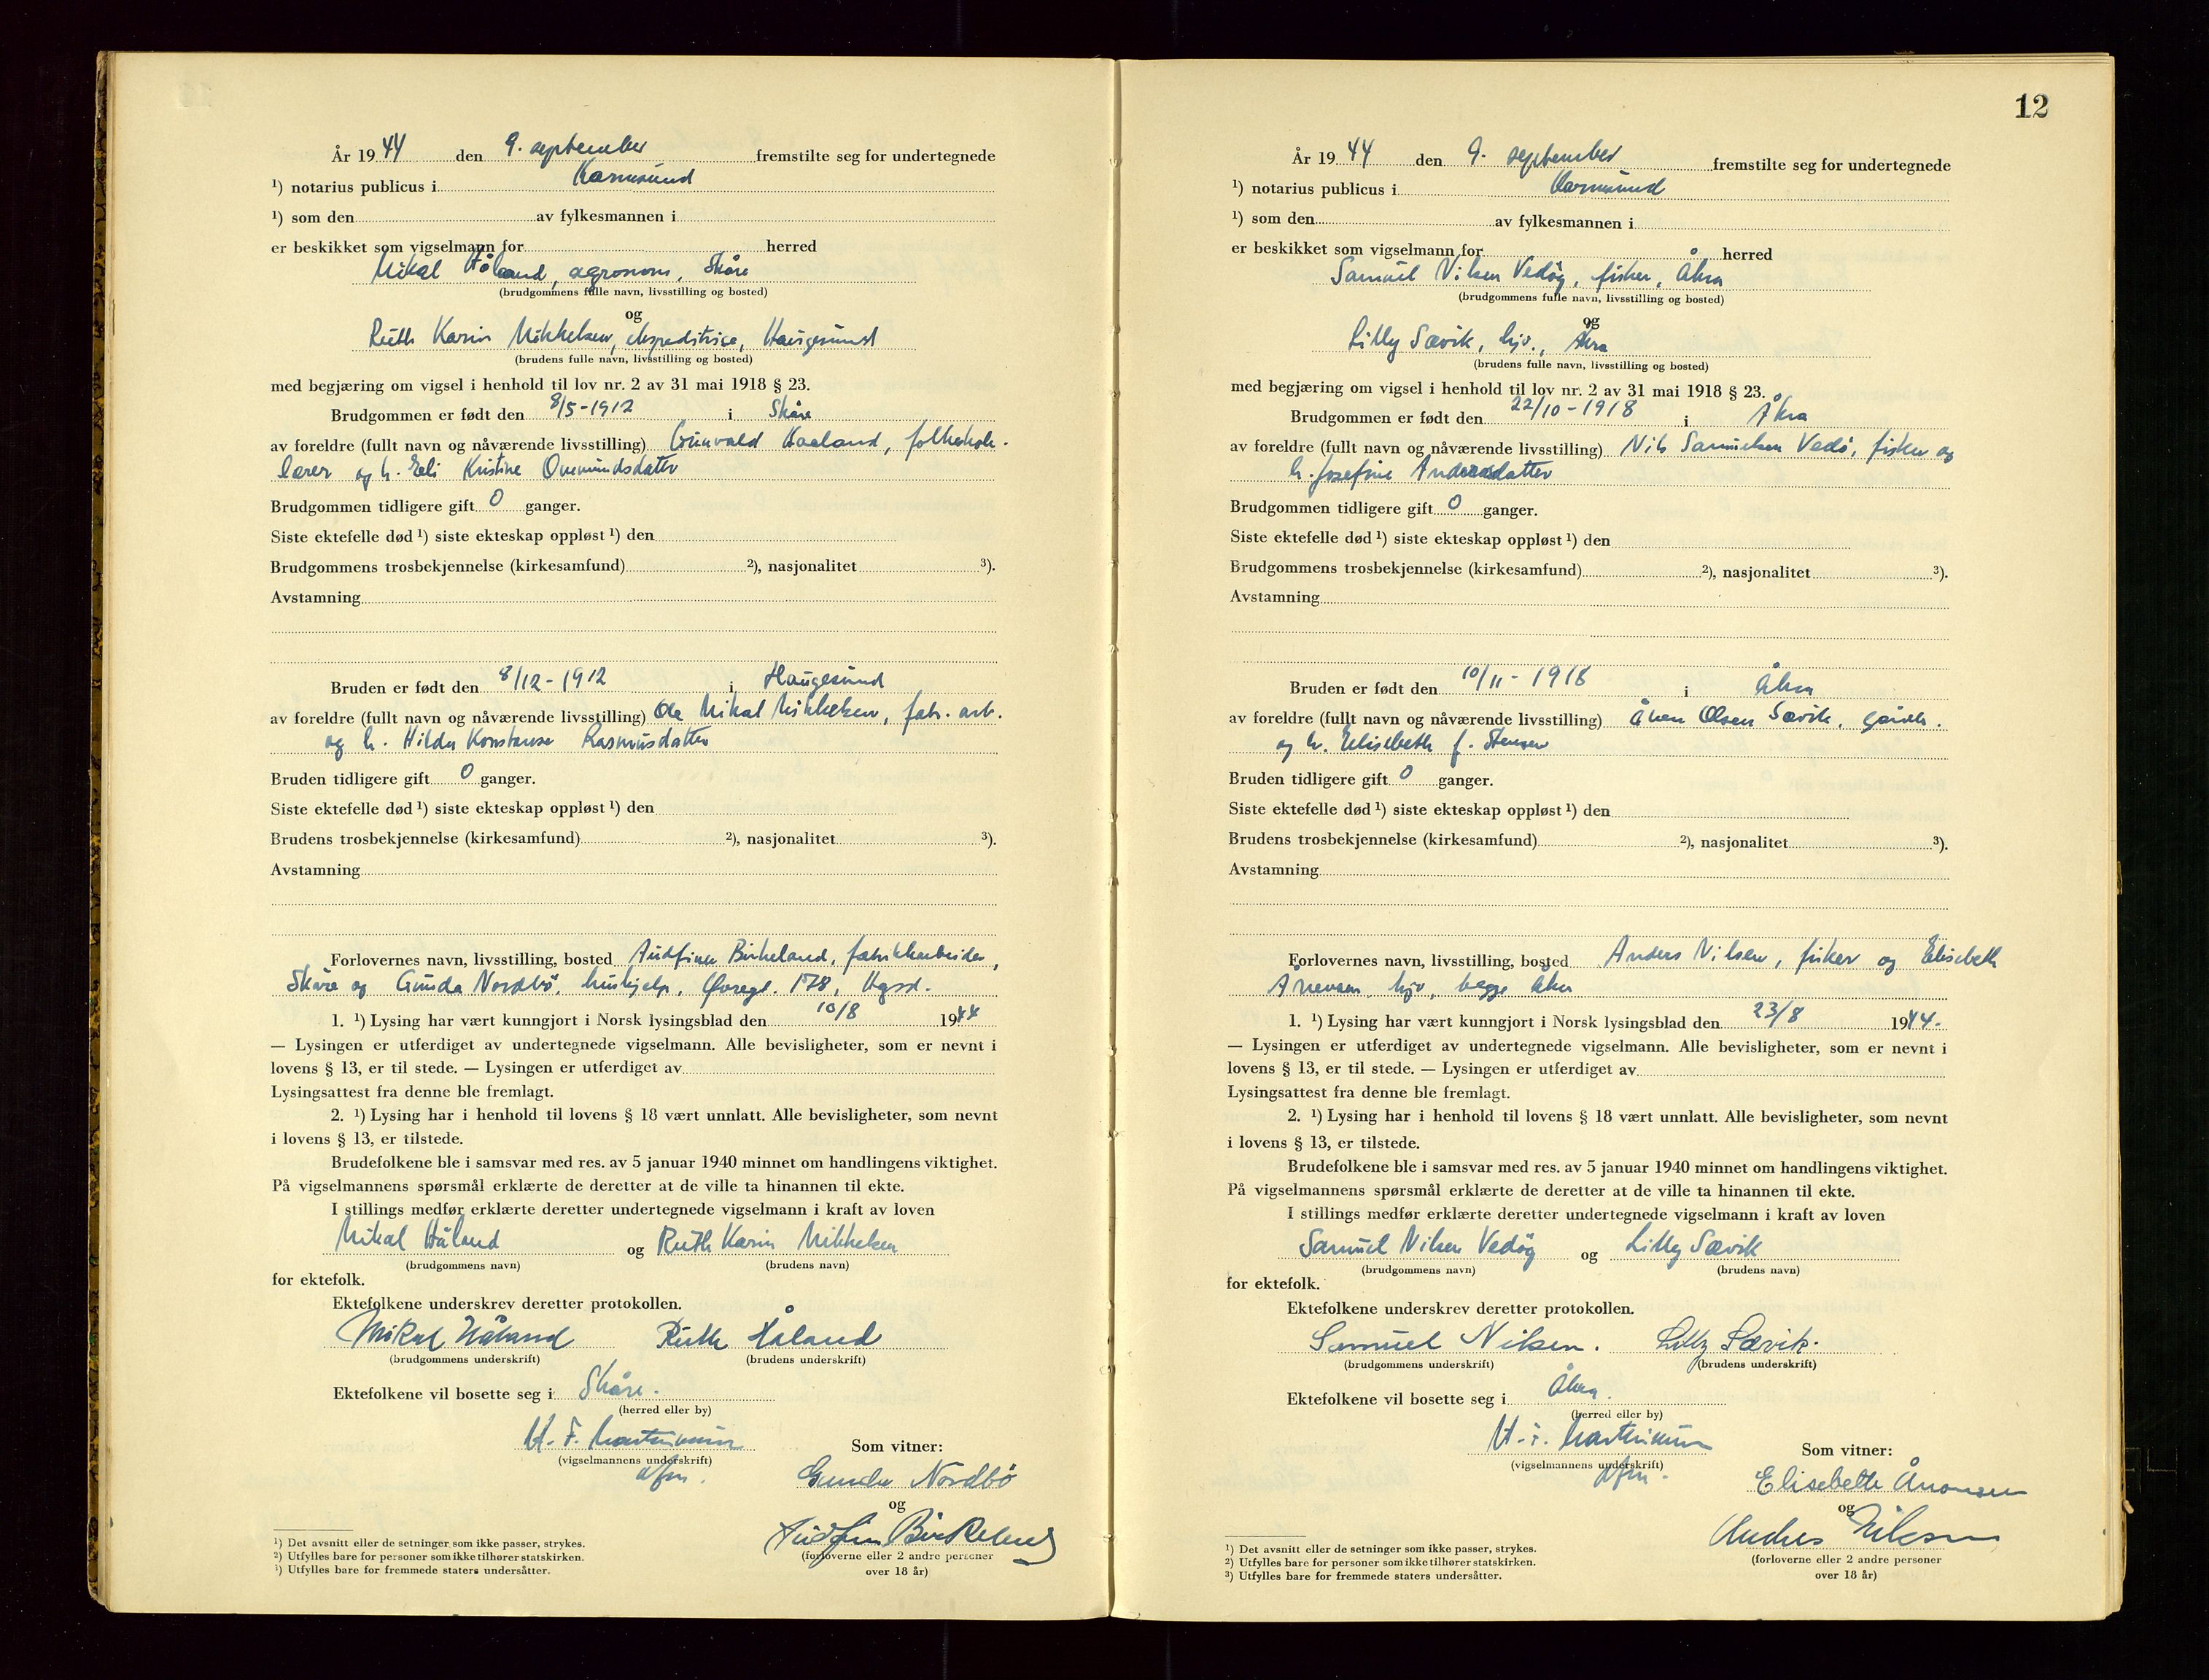 År 1944 den 9. september fremstilte seg for undertegnede
¹) notarius publicus i Karmsund
¹) som den av fylkesmannen i
er beskikket som vigselmann for herred
Mikal Håland, agronom, Skåre
(brudgommens fulle navn, livsstilling og bosted)
og
Ruth Karin Mikkelsen, ekspeditrise, Haugesund
(brudens fulle navn, livsstilling og bosted)
med begjæring om vigsel i henhold til lov nr. 2 av 31 mai 1918 § 23.
Brudgommen er født den 8/5-1912 i Skåre
av foreldre (fullt navn og nåværende livsstilling) Gunvald Haaland, folkeskole-
lærer og h. Eli Kristine Ovemundsdatter
Brudgommen tidligere gift 0 ganger.
Siste ektefelle død ¹) siste ekteskap oppløst ¹) den
Brudgommens trosbekjennelse (kirkesamfund) ²), nasjonalitet ³).
Avstamning
Bruden er født den 8/12-1912 i Haugesund
av foreldre (fullt navn og nåværende livsstilling) Ole Mikal Mikkelsen, fabr. arb.
og h. Hilda Konstanse Rasmusdatter
Bruden tidligere gift 0 ganger.
Siste ektefelle død ¹) siste ekteskap oppløst ¹) den
Brudens trosbekjennelse (kirkesamfund) ²), nasjonalitet ³).
Avstamning
Forlovernes navn, livsstilling, bosted Audfinn Birkeland, fabrikkarbeider,
Skåre og Gunda Nordbö, hushjelp, Øvregt. 178, Hgsd.
1. ¹) Lysing har vært kunngjort i Norsk lysingsblad den 10/8 1944
— Lysingen er utferdiget av undertegnede vigselmann. Alle bevisligheter, som er nevnt i
lovens § 13, er til stede. — Lysingen er utferdiget av
Lysingsattest fra denne ble fremlagt.
2. ¹) Lysing har i henhold til lovens § 18 vært unnlatt. Alle bevisligheter, som nevnt
i lovens § 13, er tilstede.
Brudefolkene ble i samsvar med res. av 5 januar 1940 minnet om handlingens viktighet.
På vigselmannens spørsmål erklærte de deretter at de ville ta hinannen til ekte.
I stillings medfør erklærte deretter undertegnede vigselmann i kraft av loven
Mikal Håland og Ruth Karin Mikkelsen
(brudgommens navn) (brudens navn)
for ektefolk.
Ektefolkene underskrev deretter protokollen.
Mikal Håland Ruth Håland
(brudgommens underskrift) (brudens underskrift)
Ektefolkene vil bosette seg i Skåre.
(herred eller by)
(vigselmannens underskrift)
Som vitner:
Gunda Nordbö
og
Audfinn Birkeland
(forloverne eller 2 andre personer
over 18 år)
¹) Det avsnitt eller de setninger som ikke passer, strykes.
²) Utfylles bare for personer som ikke tilhører statskirken.
³) Utfylles bare for fremmede staters undersåtter.
12
År 1944 den 9. september fremstilte seg for undertegnede
¹) notarius publicus i Karmsund
¹) som den av fylkesmannen i
er beskikket som vigselmann for herred
Samuel Nilsen Vedöy, fisker, Åkra
(brudgommens fulle navn, livsstilling og bosted)
og
Lilly Sævik, hjv., Åkra
(brudens fulle navn, livsstilling og bosted)
med begjæring om vigsel i henhold til lov nr. 2 av 31 mai 1918 § 23.
Brudgommen er født den 22/10-1918 i Åkra
av foreldre (fullt navn og nåværende livsstilling) Nils Samuelsen Vedö, fisker og
h. Josefine Andersdatter
Brudgommen tidligere gift 0 ganger.
Siste ektefelle død ¹) siste ekteskap oppløst ¹) den
Brudgommens trosbekjennelse (kirkesamfund) ²), nasjonalitet ³).
Avstamning
Bruden er født den 10/11-1918 i Åkra
av foreldre (fullt navn og nåværende livsstilling) Olsen Sævik, gårdb.
og h. Elisebeth f. Stensen
Bruden tidligere gift 0 ganger.
Siste ektefelle død ¹) siste ekteskap oppløst ¹) den
Brudens trosbekjennelse (kirkesamfund) ²), nasjonalitet ³).
Avstamning
Forlovernes navn, livsstilling, bosted Anders Nilsen, fisker og Elisebeth
Ånensen, hjv, begge Åkra
1. ¹) Lysing har vært kunngjort i Norsk lysingsblad den 23/8 1944.
— Lysingen er utferdiget av undertegnede vigselmann. Alle bevisligheter, som er nevnt i
lovens § 13, er til stede. — Lysingen er utferdiget av
Lysingsattest fra denne ble fremlagt.
2. ¹) Lysing har i henhold til lovens § 18 vært unnlatt. Alle bevisligheter, som nevnt
i lovens § 13, er tilstede.
Brudefolkene ble i samsvar med res. av 5 januar 1940 minnet om handlingens viktighet.
På vigselmannens spørsmål erklærte de deretter at de ville ta hinannen til ekte.
I stillings medfør erklærte deretter undertegnede vigselmann i kraft av loven
Samuel Nilsen Vedöy og Lilly Sævik
(brudgommens navn) (brudens navn)
for ektefolk.
Ektefolkene underskrev deretter protokollen.
Samuel Nilsen. Lilly Sævik.
(brudgommens underskrift) (brudens underskrift)
Ektefolkene vil bosette seg i Åkra.
(herred eller by)
(vigselmannens underskrift)
Som vitner:
Elisebeth Ånensen
og
Anders Nilsen
(forloverne eller 2 andre personer
over 18 år)
¹) Det avsnitt eller de setninger som ikke passer, strykes.
²) Utfylles bare for personer som ikke tilhører statskirken.
³) Utfylles bare for fremmede staters undersåtter.